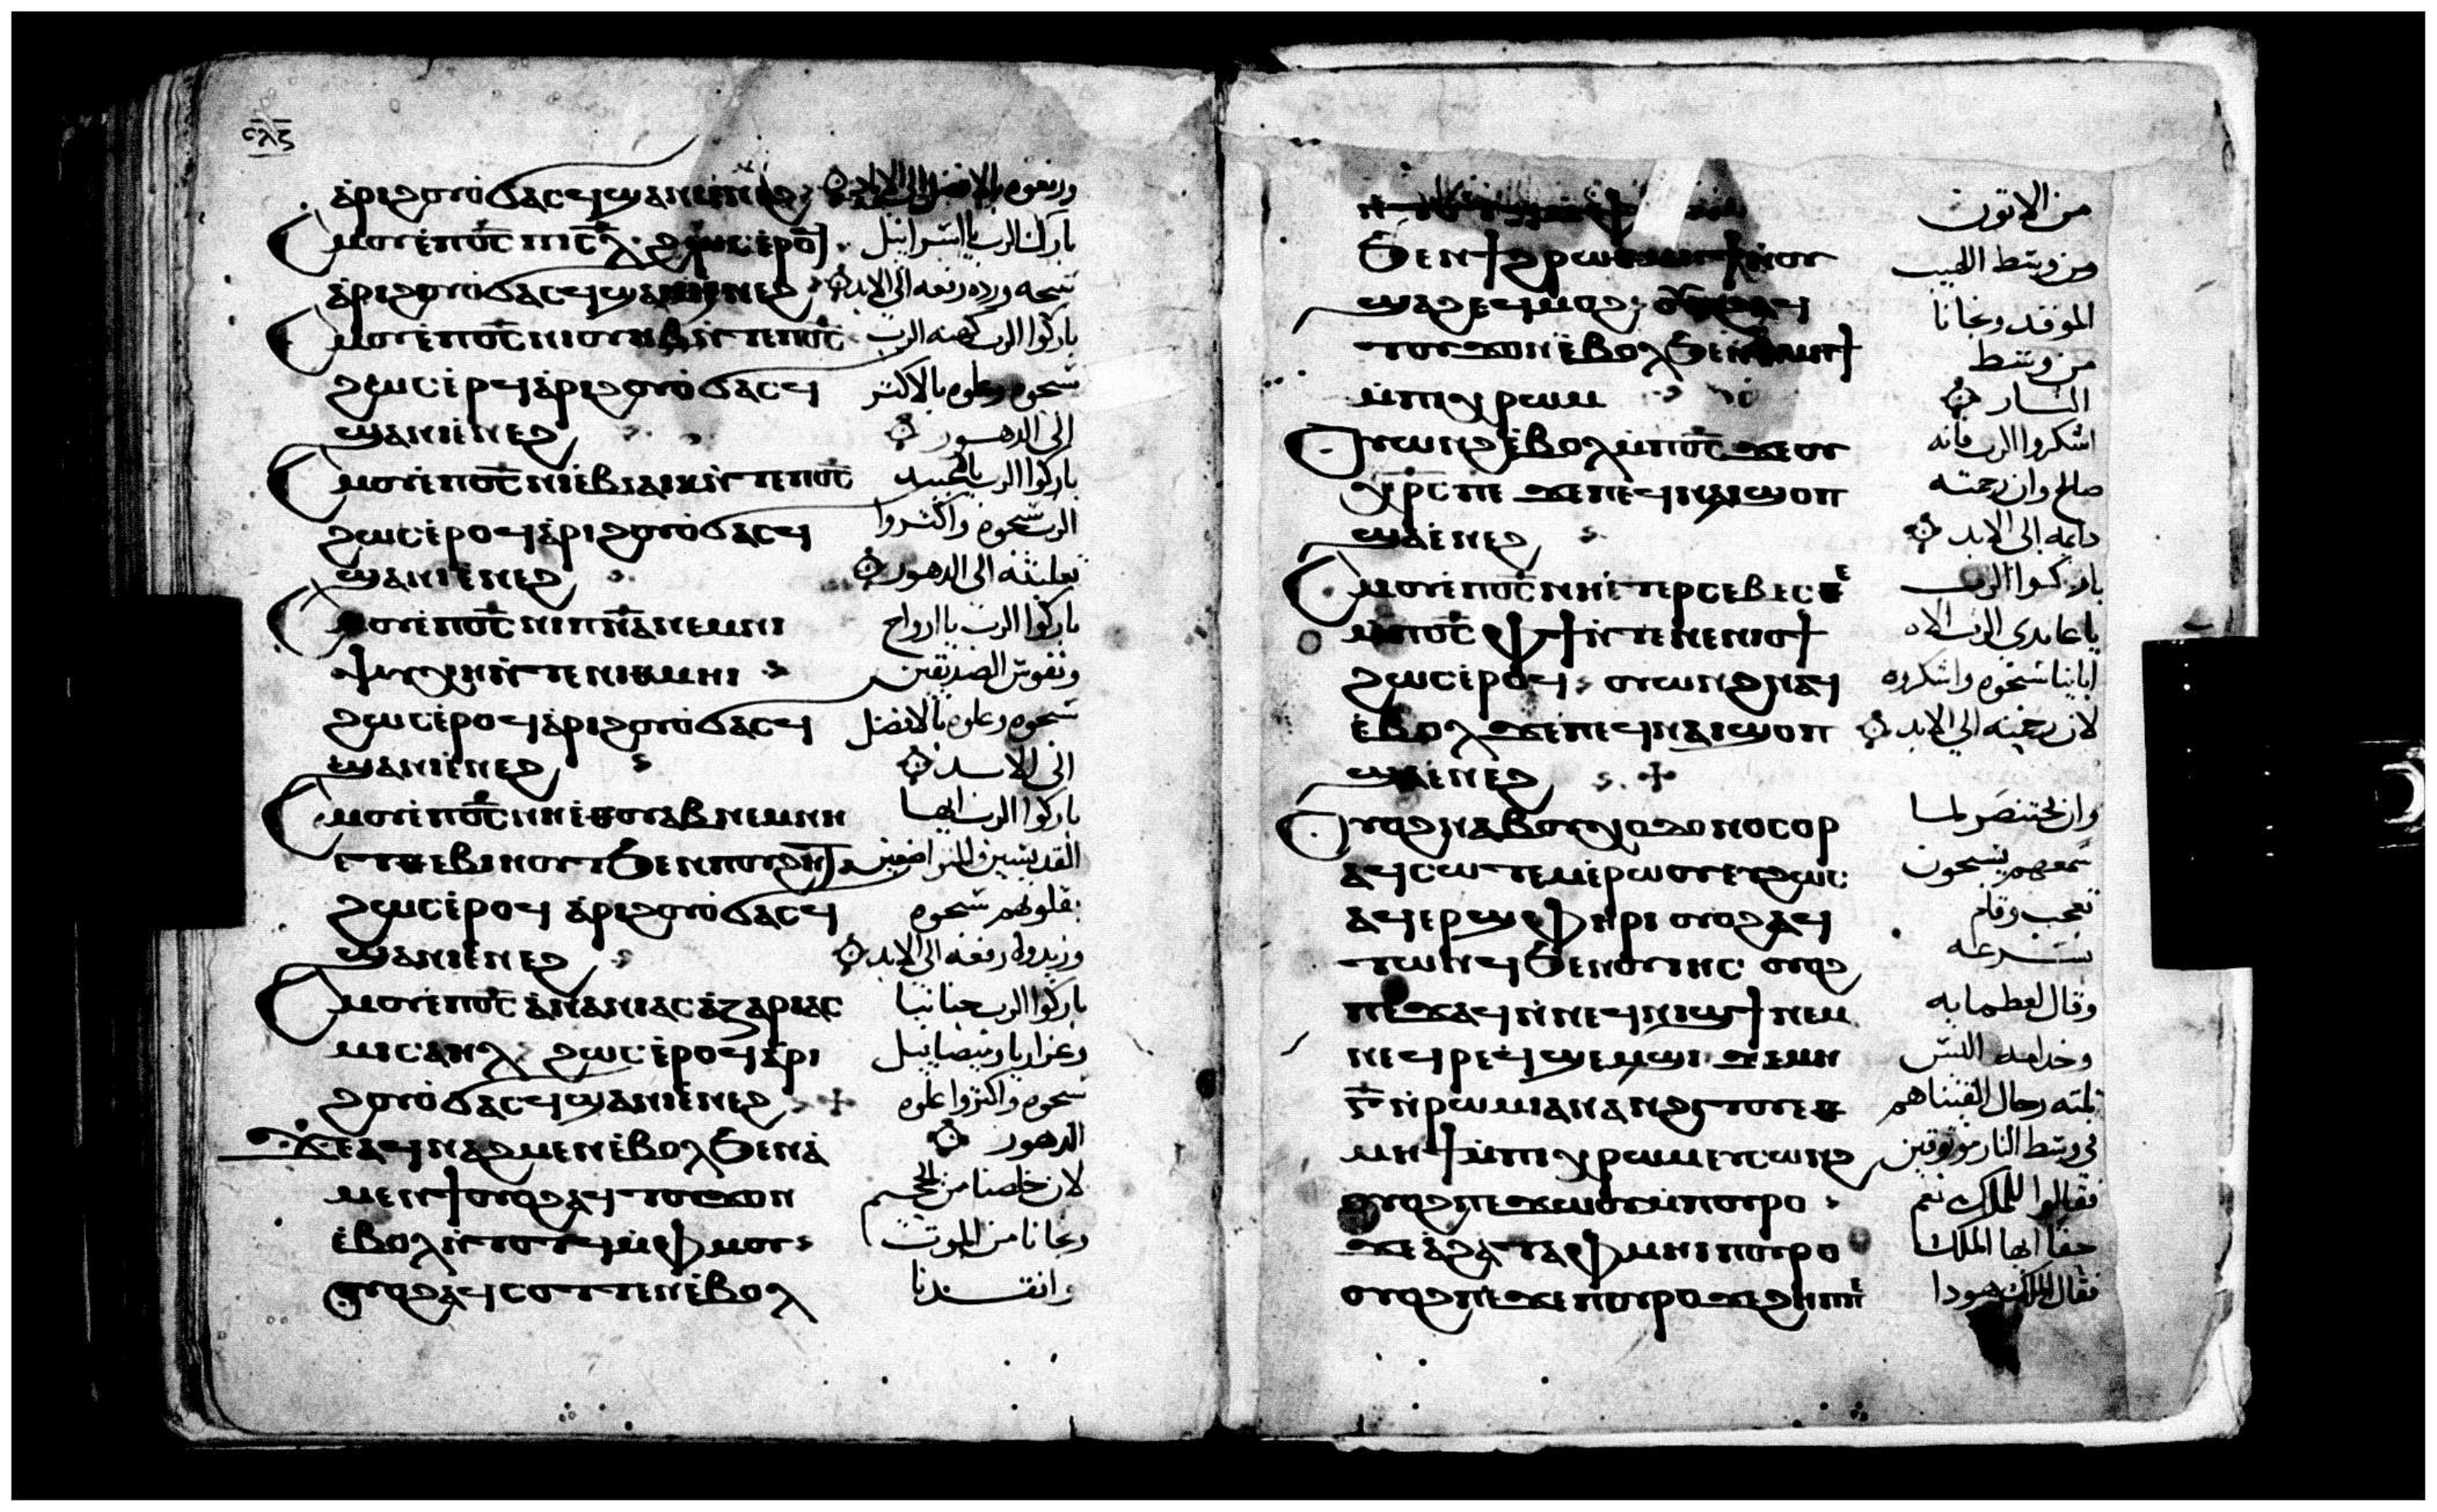 ⲥⲗⲋ
ⲁⲣⲓϩⲟⲩⲟ̀ϭⲁⲥϥ ϣⲁⲛⲓⲉ̀ⲛⲉϩ
ⲥⲙⲟⲩ ⲉ̀ⲡⲟ̅ⲥ̅ ⲡⲓⲥ̅ⲗ̅ ϩⲱⲥ ⲉ̀ⲣⲟϥ بارك الرب يا اسرائيل
ⲁ̀ⲣⲓϩⲟⲩⲟ̀ϭⲁⲥϥ ϣⲁⲛⲓⲉ̀ⲛⲉϩ سبحه وزده رفعه الى الابد
ⲥⲙⲟⲩ ⲉ̀ⲡⲟ̅ⲥ̅ ⲛⲓⲟⲩⲏⲃ ⲛ̀ⲧⲉ ⲡⲟ̅ⲥ̅ باركوا الرب كهنه الرب
ϩⲱⲥ ⲉ̀ⲣⲟϥ ⲁ̀ⲣⲓϩⲟⲩⲟ̀ϭⲁⲥϥ سبحوه وعلوه بالاكثر
ϣⲁⲛⲓⲉ̀ⲛⲉϩ الى الدهور
ⲥⲙⲟⲩ ⲉ̀ⲡⲟ̅ⲥ̅ ⲛⲓⲉ̀ⲃⲓⲁⲓⲕ ⲛ̀ⲧⲉ ⲡⲟ̅ⲥ̅ باركوا الرب يا عبيد
ϩⲱⲥ ⲉ̀ⲣⲟϥ ⲁ̀ⲣⲓϩⲟⲩⲟ̀ϭⲁⲥϥ الرب سبحوه واكثروا
ϣⲁⲛⲓⲉ̀ⲛⲉϩ تعليته الى الدهور
ⲥⲙⲟⲩ ⲉ̀ⲡⲟ̅ⲥ̅ ⲛⲓⲡ̅ⲛ̅ⲁ̅ ⲛⲉⲙ ⲛⲓ باركوا الرب يا ارواح
ⲯⲩⲭⲏ ⲛ̀ⲧⲉ ⲛⲓⲑⲙⲏⲓ ونفوس الصديقين
ϩⲱⲥ ⲉ̀ⲣⲟϥ ⲁ̀ⲣⲓϩⲟⲩⲟ̀ϭⲁⲥϥ سبحوه وعلوه بالافضل
ϣⲁⲛⲓⲉ̀ⲛⲉϩ الى الابد
ⲥⲙⲟⲩ ⲉ̀ⲡⲟ̅ⲥ̅ ⲛⲏⲉ̀ⲑⲟⲩⲁⲃ ⲛⲉⲙ ⲛⲏ باركوا الرب ايها
ⲉⲧⲑⲉⲃⲓⲏⲟⲩⲧ ϧⲉⲛ ⲡⲟⲩϩⲏⲧ القديسين والمتواضعين
ϩⲱⲥ ⲉ̀ⲣⲟϥ ⲁ̀ⲣⲓϩⲟⲩⲟ̀ϭⲁⲥϥ بقلوبهم سبحوه
ϣⲁⲛⲓⲉ̀ⲛⲉϩ وزيدوه رفعه الى الابد
ⲥⲙⲟⲩ ⲉ̀ⲡⲟ̅ⲥ̅ ⲁ̀ⲛⲁⲛⲓⲁⲥ ⲁ̀ⲍⲁⲣⲓⲁⲥ باركوا الرب حنانيا
ⲙⲓⲥⲁⲏⲗ ϩⲱⲥ ⲉ̀ⲣⲟϥ ⲁ̀ⲣⲓ وعزاريا وميصاييل
ϩⲟⲩⲟ̀ϭⲁⲥϥ ϣⲁⲛⲓⲉ̀ⲛⲉϩ سبحوه واكثروا علوه
ϫⲉ ⲁϥⲛⲁϩⲙⲉⲛ ⲉ̀ⲃⲟⲗ ϧⲉⲛ ⲁ̀ الدهور
ⲙⲉⲛϯ ⲟⲩⲟϩ ⲁϥⲧⲟⲩϫⲟⲛ لان خلصنا من الجحيم
ⲉ̀ⲃⲟⲗ ⲛ̀ⲧⲟⲧϥ ⲙ̀ⲫⲙⲟⲩ ونجانا من الموت
ⲟⲩⲟϩ ⲁϥⲥⲟⲧⲧⲉⲛ ⲉ̀ⲃⲟⲗ وانقدنا
من الاتون
ϧⲉⲛ ϯϩⲣⲱ ومن وسط اللهيب
ϣⲁϩ ⲉϥⲙⲟϩ ⲟⲩⲟϩ ⲁϥ الموقد ونجانا
ⲧⲟⲩϫⲟⲛ ⲉ̀ⲃⲟⲗ ϧⲉⲛ ⲑⲙⲏϯ من وسط
ⲙ̀ⲡⲓⲭⲣⲱⲙ النار
ⲟⲩⲱⲛϩ ⲉ̀ⲃⲟⲗ ⲙ̀ⲡⲟ̅ⲥ̅ ϫⲉ ⲟⲩ اشكروا الرب فانه
ⲭⲣ̅ⲥ̅ ⲡⲉ ϫⲉ ⲡⲉϥⲛⲁⲓ ϣⲟⲡ صالح وان رحمته
ϣⲁⲉ̀ⲛⲉϩ دايمه الى الابد
ⲥⲙⲟⲩ ⲉ̀ⲡⲟ̅ⲥ̅ ⲛⲏⲉ̀ⲧⲉⲣⲥⲉⲃⲉⲥⲑⲉ باركوا الرب
ⲙ̀ⲡⲟ̅ⲥ̅ ⲫϯ ⲛ̀ⲧⲉ ⲛⲉⲛⲓⲟϯ يا عابدي الرب الاه
ϩⲱⲥ ⲉ̀ⲣⲟϥ ⲟⲩⲱⲛϩ ⲛⲁϥ اباينا سبحوه واشكروه
ⲉ̀ⲃⲟⲗ ϫⲉ ⲡⲉϥⲛⲁⲓ ϣⲟⲡ لان رحمته الى الابد
ϣⲁⲉ̀ⲛⲉϩ
ⲟⲩⲟϩ ⲛⲁⲃⲟⲩⲭⲟⲇⲟⲛⲟⲥⲟⲣ وان بختنصر لما
ⲁϥⲥⲱⲧⲉⲙ ⲉ̀ⲣⲱⲟⲩ ⲉⲩϩⲱⲥ سمعهم يسبحون
ⲁϥⲉⲣϣⲫⲏⲣⲓ ⲟⲩⲟϩ ⲁϥ تعجب وقام
ⲧⲱⲛϥ ϧⲉⲛ ⲟⲩⲓⲏⲥ ⲟⲩⲟϩ بسرعه
ⲡⲉϫⲁϥ ⲛ̀ⲛⲉϥⲛⲓϣϯ ⲛⲉⲙ وقال لعظمايه
ⲛⲉϥⲣⲉϥϣⲉⲙϣⲓ ϫⲉ ⲙⲏ وخدامه اليس
ⲅ̅ ⲛ̀ⲣⲱⲙⲓ ⲁⲛ ⲁⲛϩⲓⲧⲟⲩ ⲉⲑ تلته رجال القيناهم
ⲙⲏϯ ⲙ̀ⲡⲓⲭⲣⲱⲙ ⲉⲩⲥⲱⲛϩ في وسط النار موثوقين
ⲟⲩⲟϩ ⲡⲉϫⲱⲟⲩ ⲙ̀ⲡⲟⲩⲣⲟ فقالوا للملك نعم
ϫⲉ ⲁ̀ϩⲁ ⲧⲁⲫⲙⲏⲓ ⲡⲟⲩⲣⲟ حقا ايها الملك
ⲟⲩⲟϩ ⲡⲉϫⲉ ⲡⲟⲩⲣⲟ ϫⲉ ϩⲏⲡⲡⲉ فقال الملك هودا